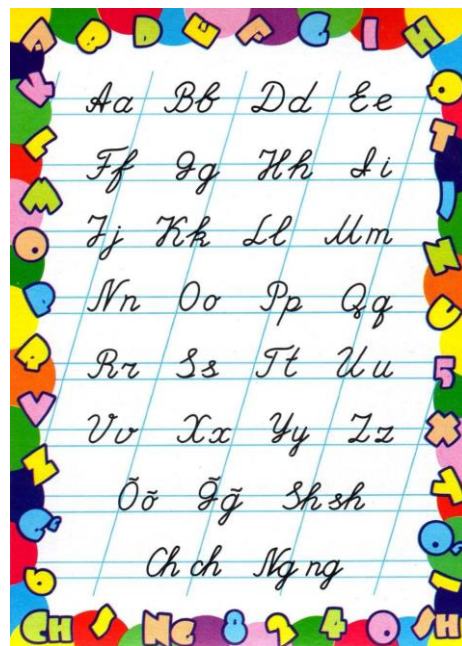 Aa Bb Dd Ee
Ff Gg Hh Ii
Jj Kk Ll Mm
Nn Oo Pp Qq
Rr Ss Tt Uu
Vv Xx Yy Zz
Õõ G̃g̃ Sh sh
Ch ch Ng ng